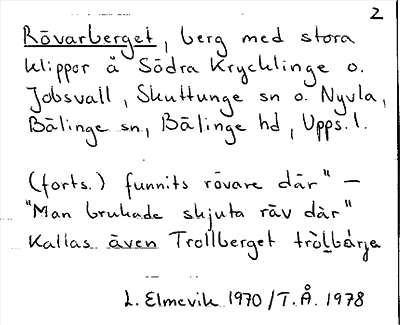 2
Rövarberget, berg med stora
klippor å Södra Krycklinge o.
Jobsvall, Skuttunge sn o. Nyvla,
Bälinge sn, Bälinge hd, Upps.l.
(forts.) funnits rövare där" —
"Man brukade skjuta räv där"
Kallas även Trollberget tròlbárja
L. Elmevik 1970/T.Å. 1978